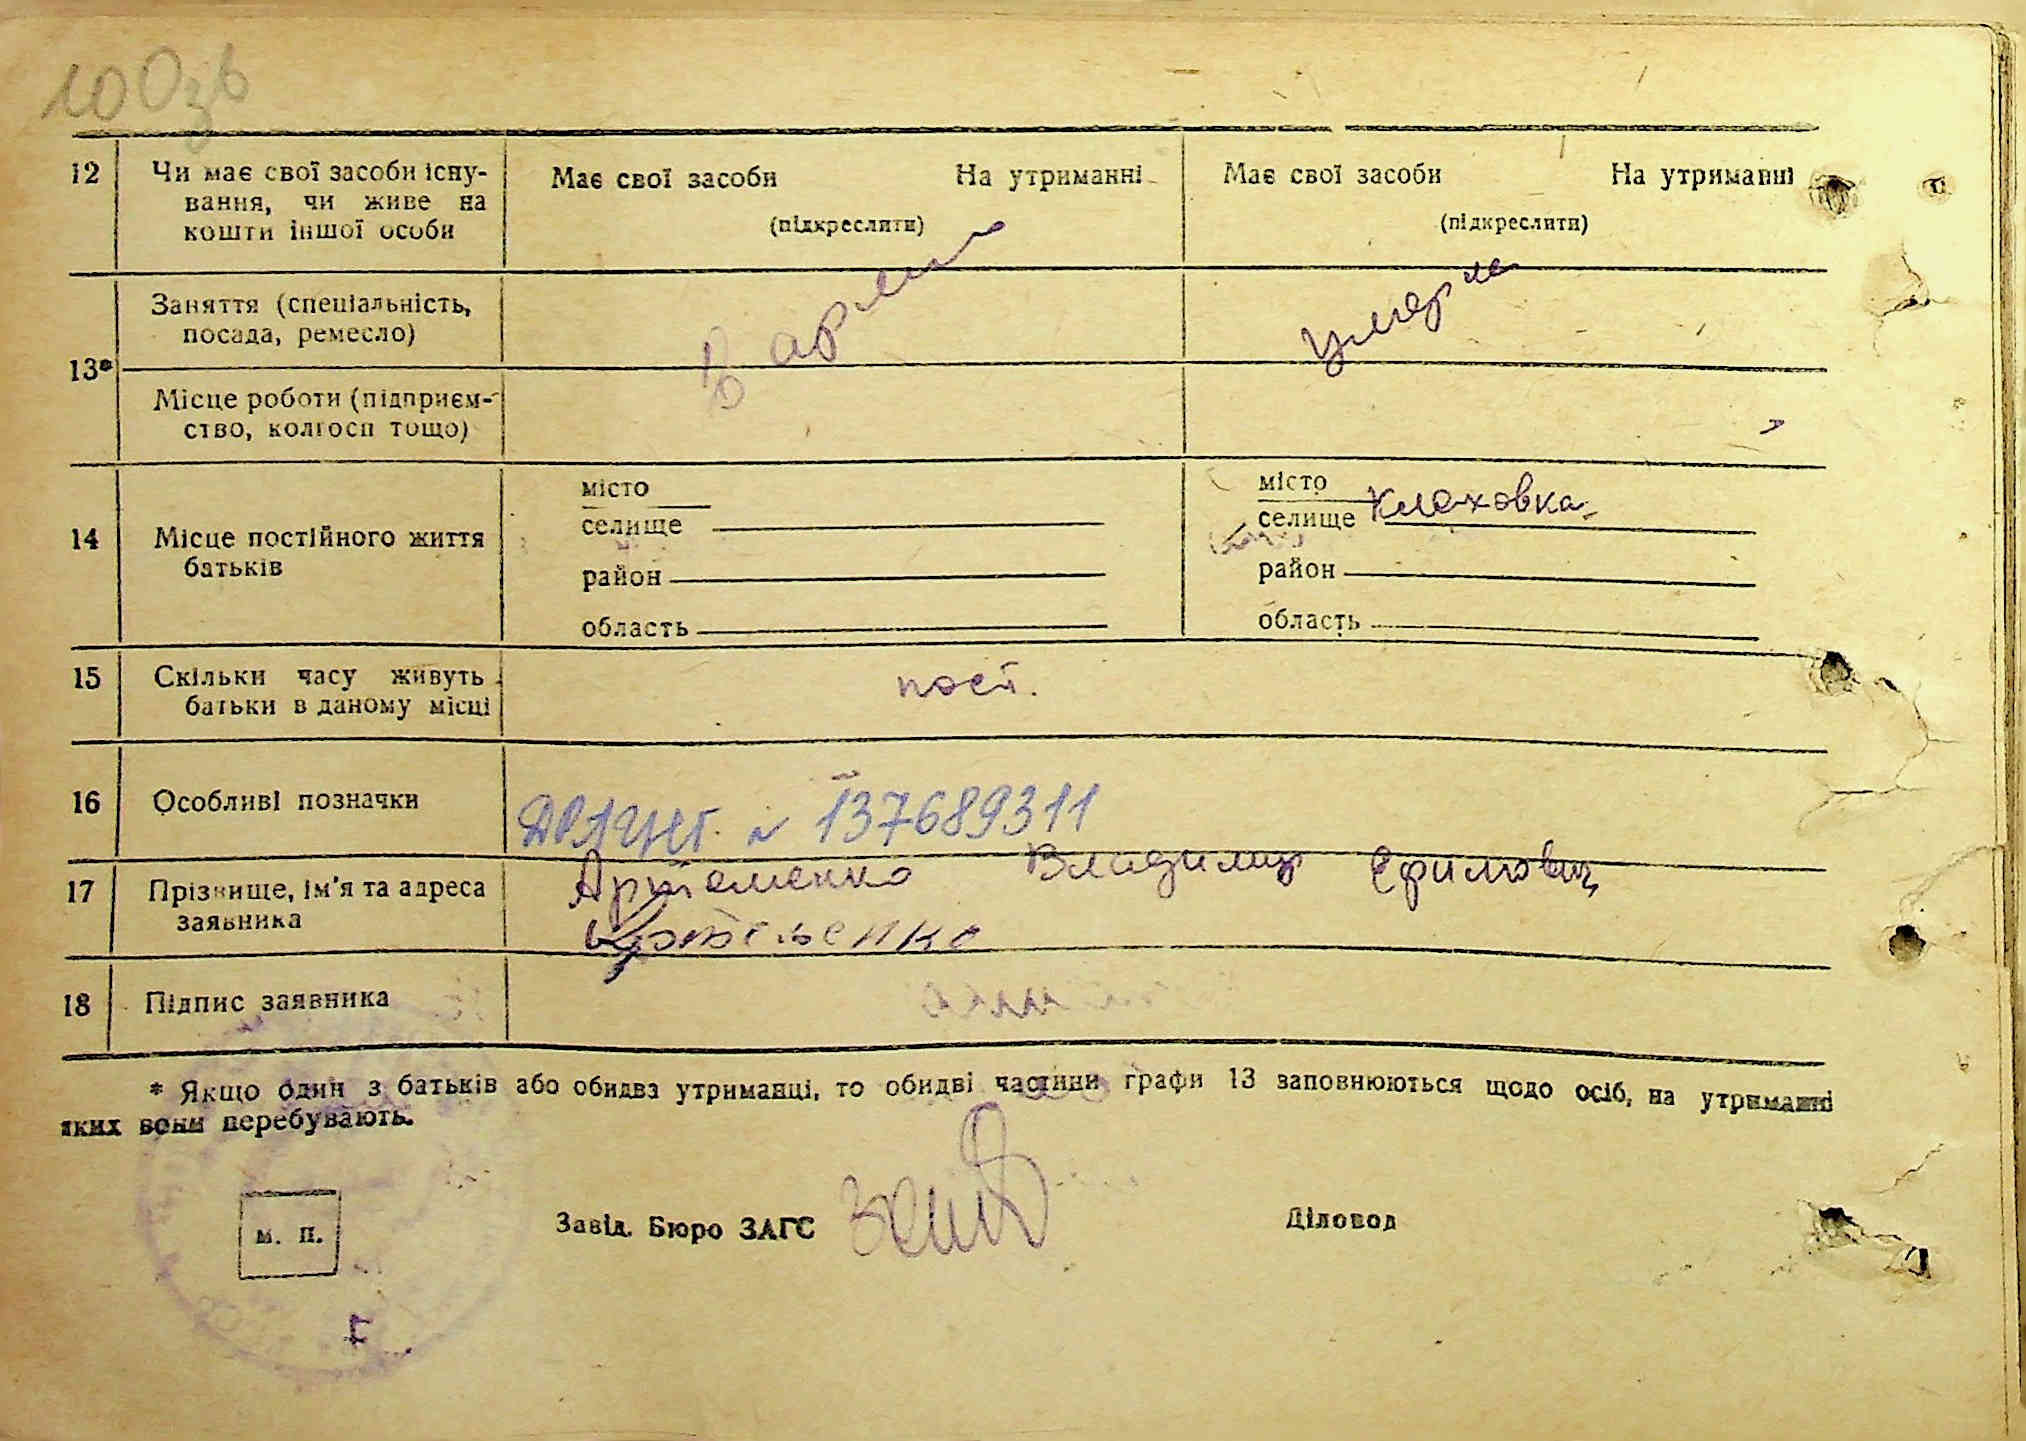 100зв
12 Чи має свої засоби існу-
вання, чи живе на
кошти іншої особи
Має свої засоби На утриманні
(підкреслити)
Має свої засоби На утриманні
(підкреслити)
13*
Заняття (спеціальність,
посада, ремесло)
В армии
умерла
Місце роботи (підприєм-
ство, колгосп тощо)
14 Місце постійного життя
батьків
місто
селище
район
область
місто
селище Кляховка
район
область
15 Скільки часу живуть
батьки в даному місці
пост.
16 Особливі позначки
ДРАЦСГ. № 137689311
17 Прізвище, ім'я та адреса
заявника
Артеменко Владимир Ефимович
18 Підпис заявника
* Якщо один з батьків або обидва утриманці, то обидві частини графи 13 заповнюються щодо осіб, на утриманні
яких вони перебувають.
м. п.
Завід. Бюро ЗАГС
Діловод